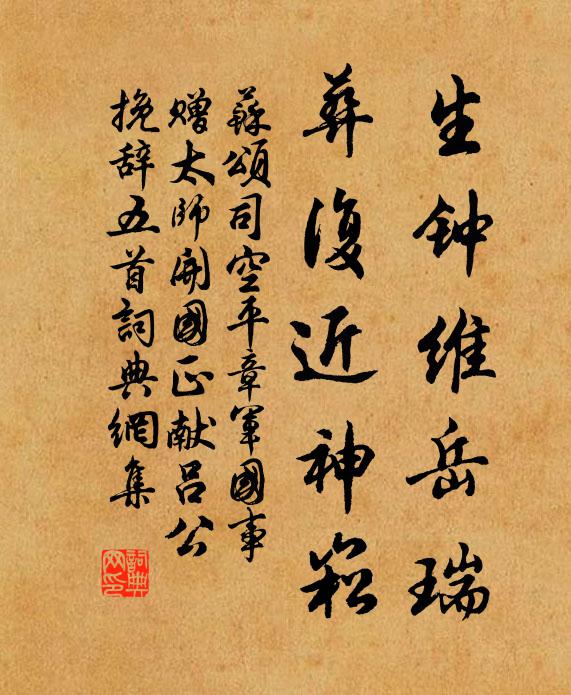 生钟维岳瑞
葬復近神崧
蘇頌司空平章軍國事
贈太师開國正献吕公
挽辞五首詞典網集
詞典
网印